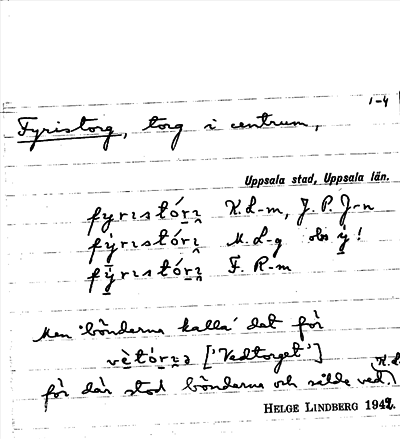 1-4
Fyristorg, torg i centrum,
Uppsala stad, Uppsala län.
fyrıstórı̯ K.L-m, J.P.J-n
fy̆rıstórı̯ M.L-g obs y̆!
fy̆rıstórı̯ F.R-m
Men 'bönderna kalla' det för
vètórzə ['Vedtorget']
för där stod bönderna och sålde ved. K.L.
HELGE LINDBERG 1942.